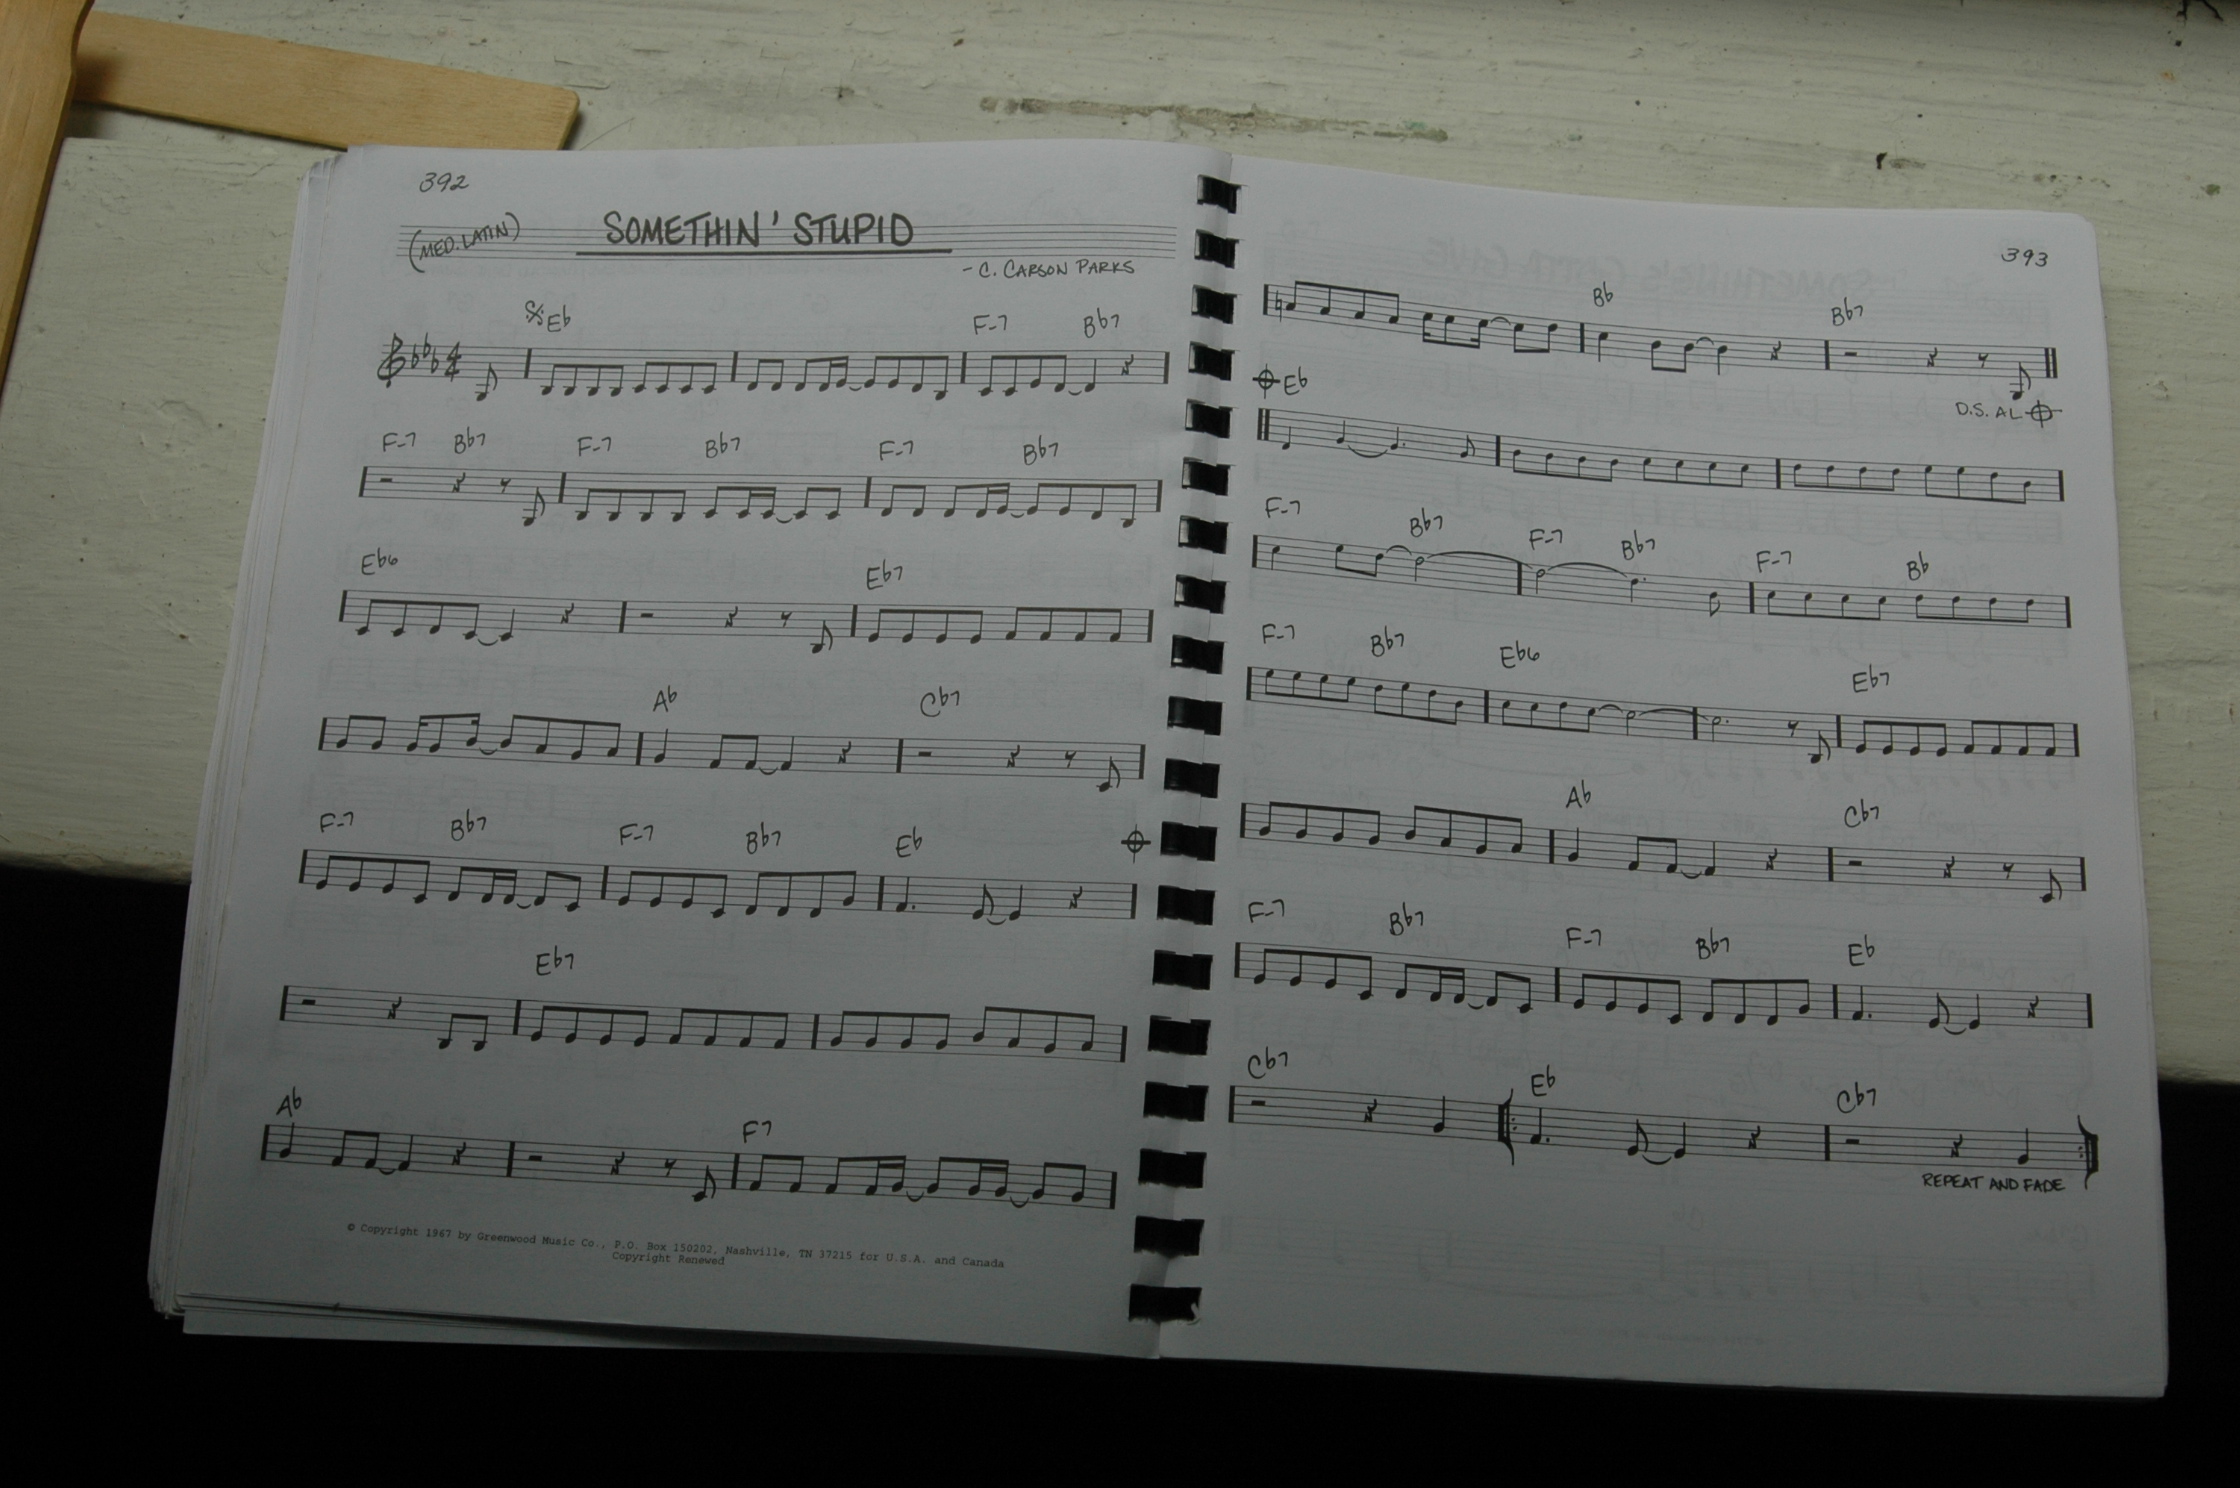 392
(MED. LATIN) SOMETHIN' STUPID
- C. CARSON PARKS
Eb F-7 Bb7
F-7 Bb7 F-7 Bb7 F-7 Bb7
Eb6 Eb7
Ab Cb7
F-7 Bb7 F-7 Bb7 Eb
Eb7
Ab F7
© Copyright 1967 by Greenwood Music Co., P.O. Box 150202, Nashville, TN 37215 for U.S.A. and Canada
Copyright Renewed
393
Bb Bb7
D.S. AL
Eb
F-7 Bb7 F-7 Bb7 F-7 Bb
F-7 Bb7 Eb6 Eb7
Ab Cb7
F-7 Bb7 F-7 Bb7 Eb
Cb7 Eb Cb7
REPEAT AND FADE